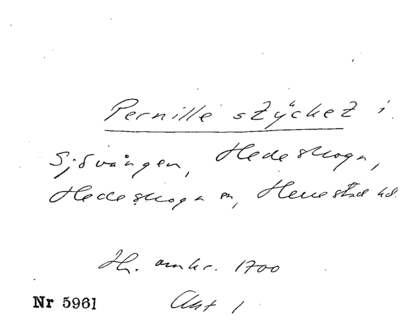 Pernille stÿcket i
Sjövången, Hedeskoga,
Hedeskoga sn, Herrestad hd.
Hr. omkr. 1700
Nr 5961 Akt 1